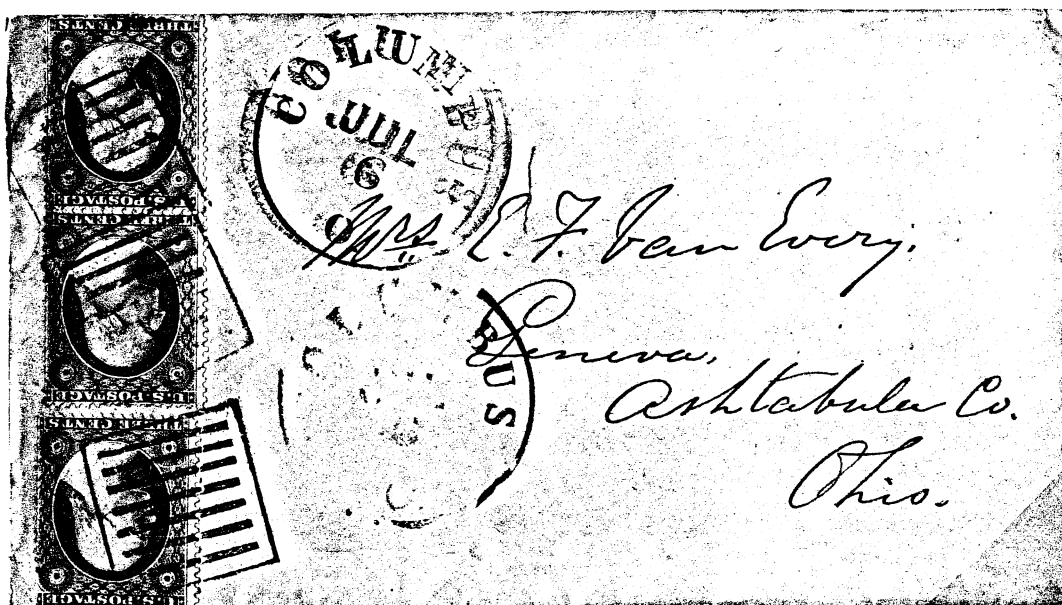 THREE CENTS
U.S. POSTAGE
THREE CENTS
U.S. POSTAGE
THREE CENTS
U.S. POSTAGE
COLUMBUS
JUL
O
BUS
Mrs E. F. Van Every.
Geneva,
Ashtabula Co.
Ohio.